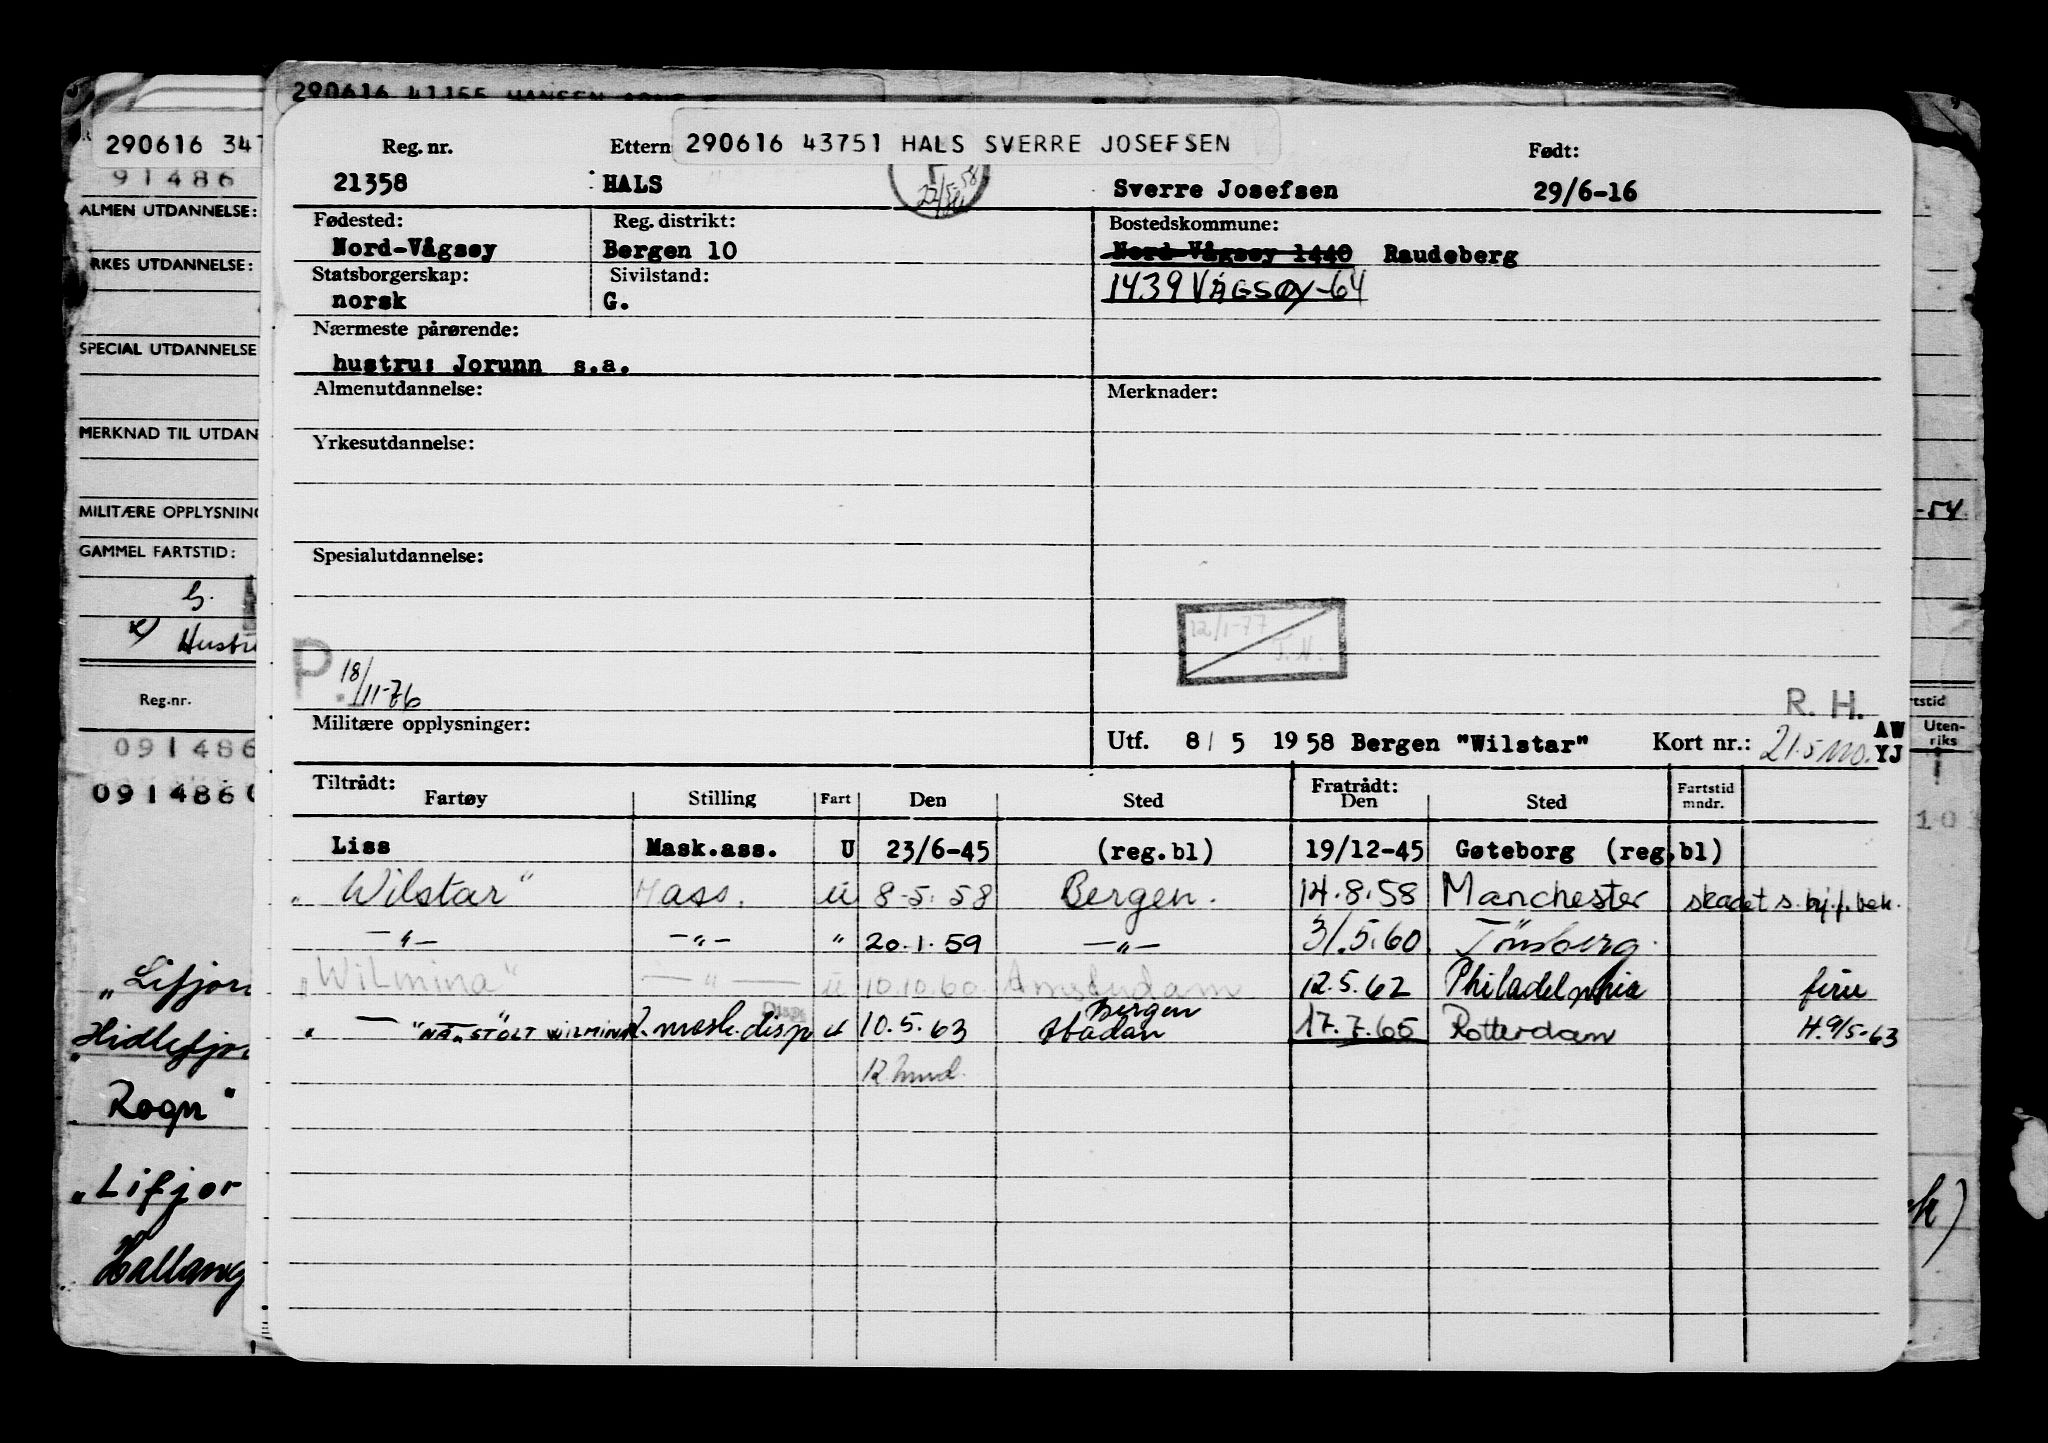 290616 41155 HANSEN
290616 347
91486
ALMEN UTDANNELSE:
RKES UTDANNELSE:
SPECIAL UTDANNELSE
MERKNAD TIL UTDAN
MILITÆRE OPPLYSNING
GAMMEL FARTSTID:
G.
x) Hustr
Reg.nr.
091486
091486
"Lifjor
Hidlefjor
Rogn"
"Lifjor
Hallang
290616 43751 HALS SVERRE JOSEFSEN
Reg. nr. Ettern Født:
21358 HALS Sverre Josefsen 29/6-16
Fødested: Reg. distrikt: Bostedskommune:
Nord-Vågsøy Bergen 10 Nord Vågsøy 1440 Raudeberg
Statsborgerskap: Sivilstand:
norsk G. 1439 VÅGSØY-64
Nærmeste pårørende:
hustru: Jorunn s.a.
Almenutdannelse: Merknader:
Yrkesutdannelse:
Spesialutdannelse:
12/1-77
T.H.
P. 18/11-76
R. H.
Militære opplysninger: Utf. 8/ 5 1958 Bergen "Wilstar" Kort nr.: 21.5 mo. AW
YJ
Tiltrådt: Fratrådt:
Fartøy Stilling Fart Den Sted Den Sted Fartstid mndr.
Liss Mask.ass. U 23/6-45 (reg.bl) 19/12-45 Gøteborg (reg.bl)
"Wilstar" Mass. u 8-5.58 Bergen. 14.8.58 Manchester skadet s. bij.f. bek.
—"— —"— " 20.1.59 —"— 31.5.60 Tönsberg.
"Wilmina" —"— u 10.10.60. Amsterdam 12.5.62 Philadelphia ferie
" — " NÅ "STOLT WILMINA 2. mask. disp u 10.5.63 Bergen Abadan 17.7.65 Rotterdam H.9/5-63
12 hmd.
-54
rtstid
Uten-
riks
10
k)